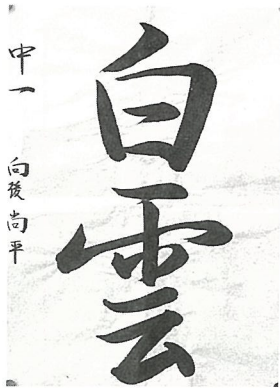 白雲
中一 向後尚平